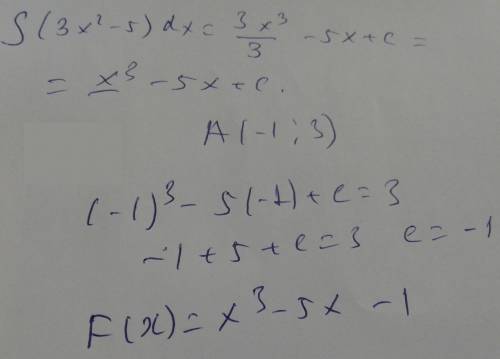 ∫(3x²-5)dx = 3x³/3 - 5x + c =
= x³ - 5x + c.
A(-1; 3)
(-1)³ - 5(-1) + c = 3
-1 + 5 + c = 3 c = -1
F(x) = x³ - 5x - 1